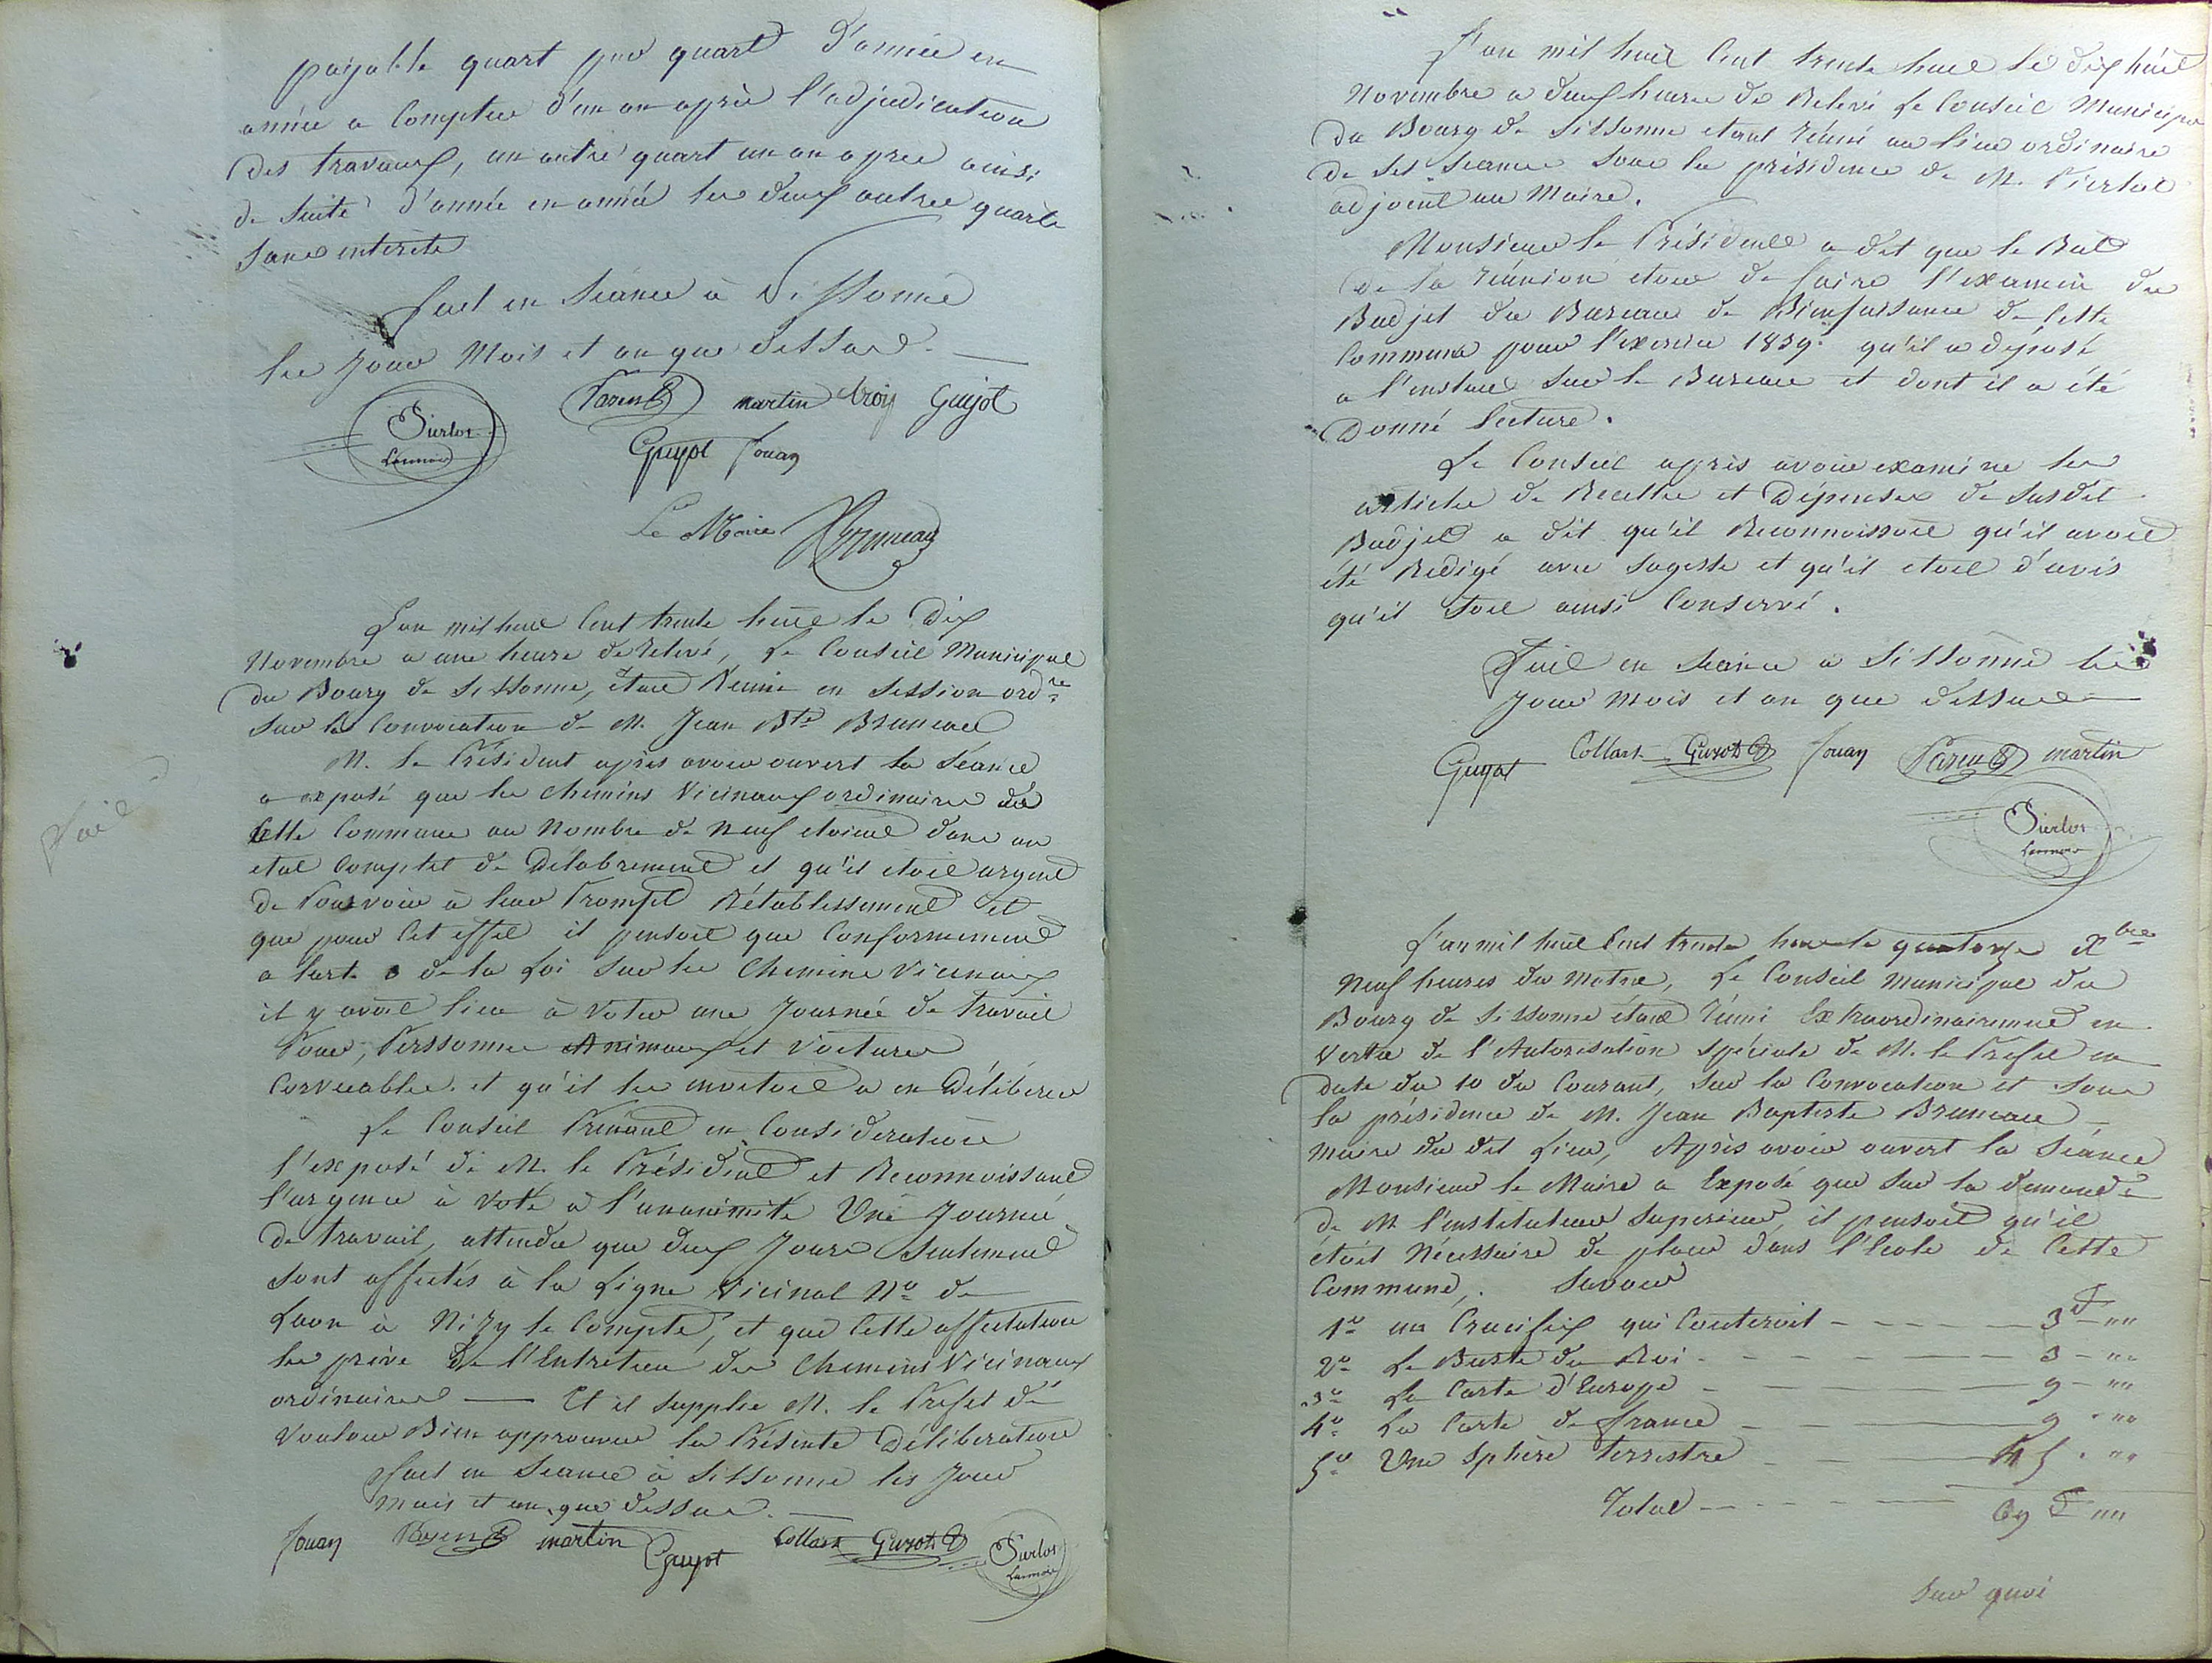 payable quart par quart d'année en
année a Compter d'un an après l'adjudication
Des travaux, un autre quart un an apres ainsi
de suite d'année en année les deux autres quarts
Sans interets
fait en Séance à Sissonne
les Jour Mois et an que dessus.
Pierlot Lannois Parent martin troij Guyot
Guyot Jouay
Le Maire Bruneau
L'an mil huit Cent trente huit le Dix
Novembre a une heure de relevé, Le Conseil Municipal
du Bourg de Sissonne, étant Réunie en Session ordre
Sur la Convocation de M. Jean Bte Bruneau
M. le Président après avoir ouvert la Séance
a exposé que les chemins Vicinaux ordinaires de
Cette Commune au Nombre de Neuf etoient dans un
etat Complet de Délabrement et qu'il etoit urgent
de Pourvoir à leur Prompt Rétablissement et
que pour Cet effet il pensoit que Conformement
a l'art. 3 de la Loi Sur les Chemins Vicinaux
il y avoit lieu à Voter une Journée de travail
Pour, Perssonnes Animaux et Voitures
Corveables. et qu'il les invitoit a en Déliberer
Le Conseil Prenant en Consideration
l'exposé de M. le Président et Reconnoissant
l'urgence à Voté a l'unanimité Une Journée
de travail, attendu que deux Jours Seulement
sont affectés à la Ligne Vicinal No de
Laon à Nizy le Compte, et que Cette affectation
les prive de l'Entretien des Chemins Vicinaux
ordinaires — Et il Supplie M. le Prefet de
Vouloir Bien approuver la Présente Déliberation
fait en Seance à Sissonne les Jour
mois et an que dessus.
Jouay Parent martin Guyot Collart Guyot Pierlot Lannois
fait
L'an mil huit Cent trente huit le dix huit
Novembre a deux heures de Relevé Le Conseil Municipal
du Bourg de Sissonne etant réuni au lieu ordinaire
de Ses Seances Sous la présidence de M. Pierlot
adjoint au Maire.
Monsieur le Président a dit que le But
de la réunion etoit de faire l'examen du
Budjet du Bureau de Bienfaisance de Cette
Commune pour l'exercice 1839. qu'il a déposé
a l'instant Sur le Bureau et dont il a été
Donné lecture.
Le Conseil après avoir examiné les
articles de Recettes et Dépenses de Susdit
Budjet a dit qu'il Reconnoissoit qu'il avoit
été Redigé avec Sagesse et qu'il etoit d'avis
qu'il Soit ainsi Conservé.
Fait en Seance a Sissonne les
Jour Mois et an que dessus
Guyot Collart Guyot Jouay Parent martin
Pierlot Lannois
L'an mil huit Cent trente huit le quatorze Xbre
Neuf heures du Matin, Le Conseil Municipal du
Bourg de Sissonne étant réuni Extraordinairement en
Vertu de l'Autorisation Spéciale de M. le Prefet en
date du 10 du Courant, Sur la Convocation et Sous
la présidence de M. Jean Baptiste Bruneau
Maire du dit Lieu, Après avoir ouvert la Séance
Monsieur le Maire a Exposé que Sur la demande
de M l'instituteur Superieur, il pensoit qu'il
étoit Nécessaire de placer dans l'Ecole de Cette
Commune, Savoir
1o un Crucifix qui Couteroit 3 f ""
2o Le Buste du Roi 3 - ""
3o La Carte d'Europe 9 - ""
4o La Carte de france 9 - ""
5o Une Sphère terrestre 45 . ""
Total 69 f ""
Sur quoi